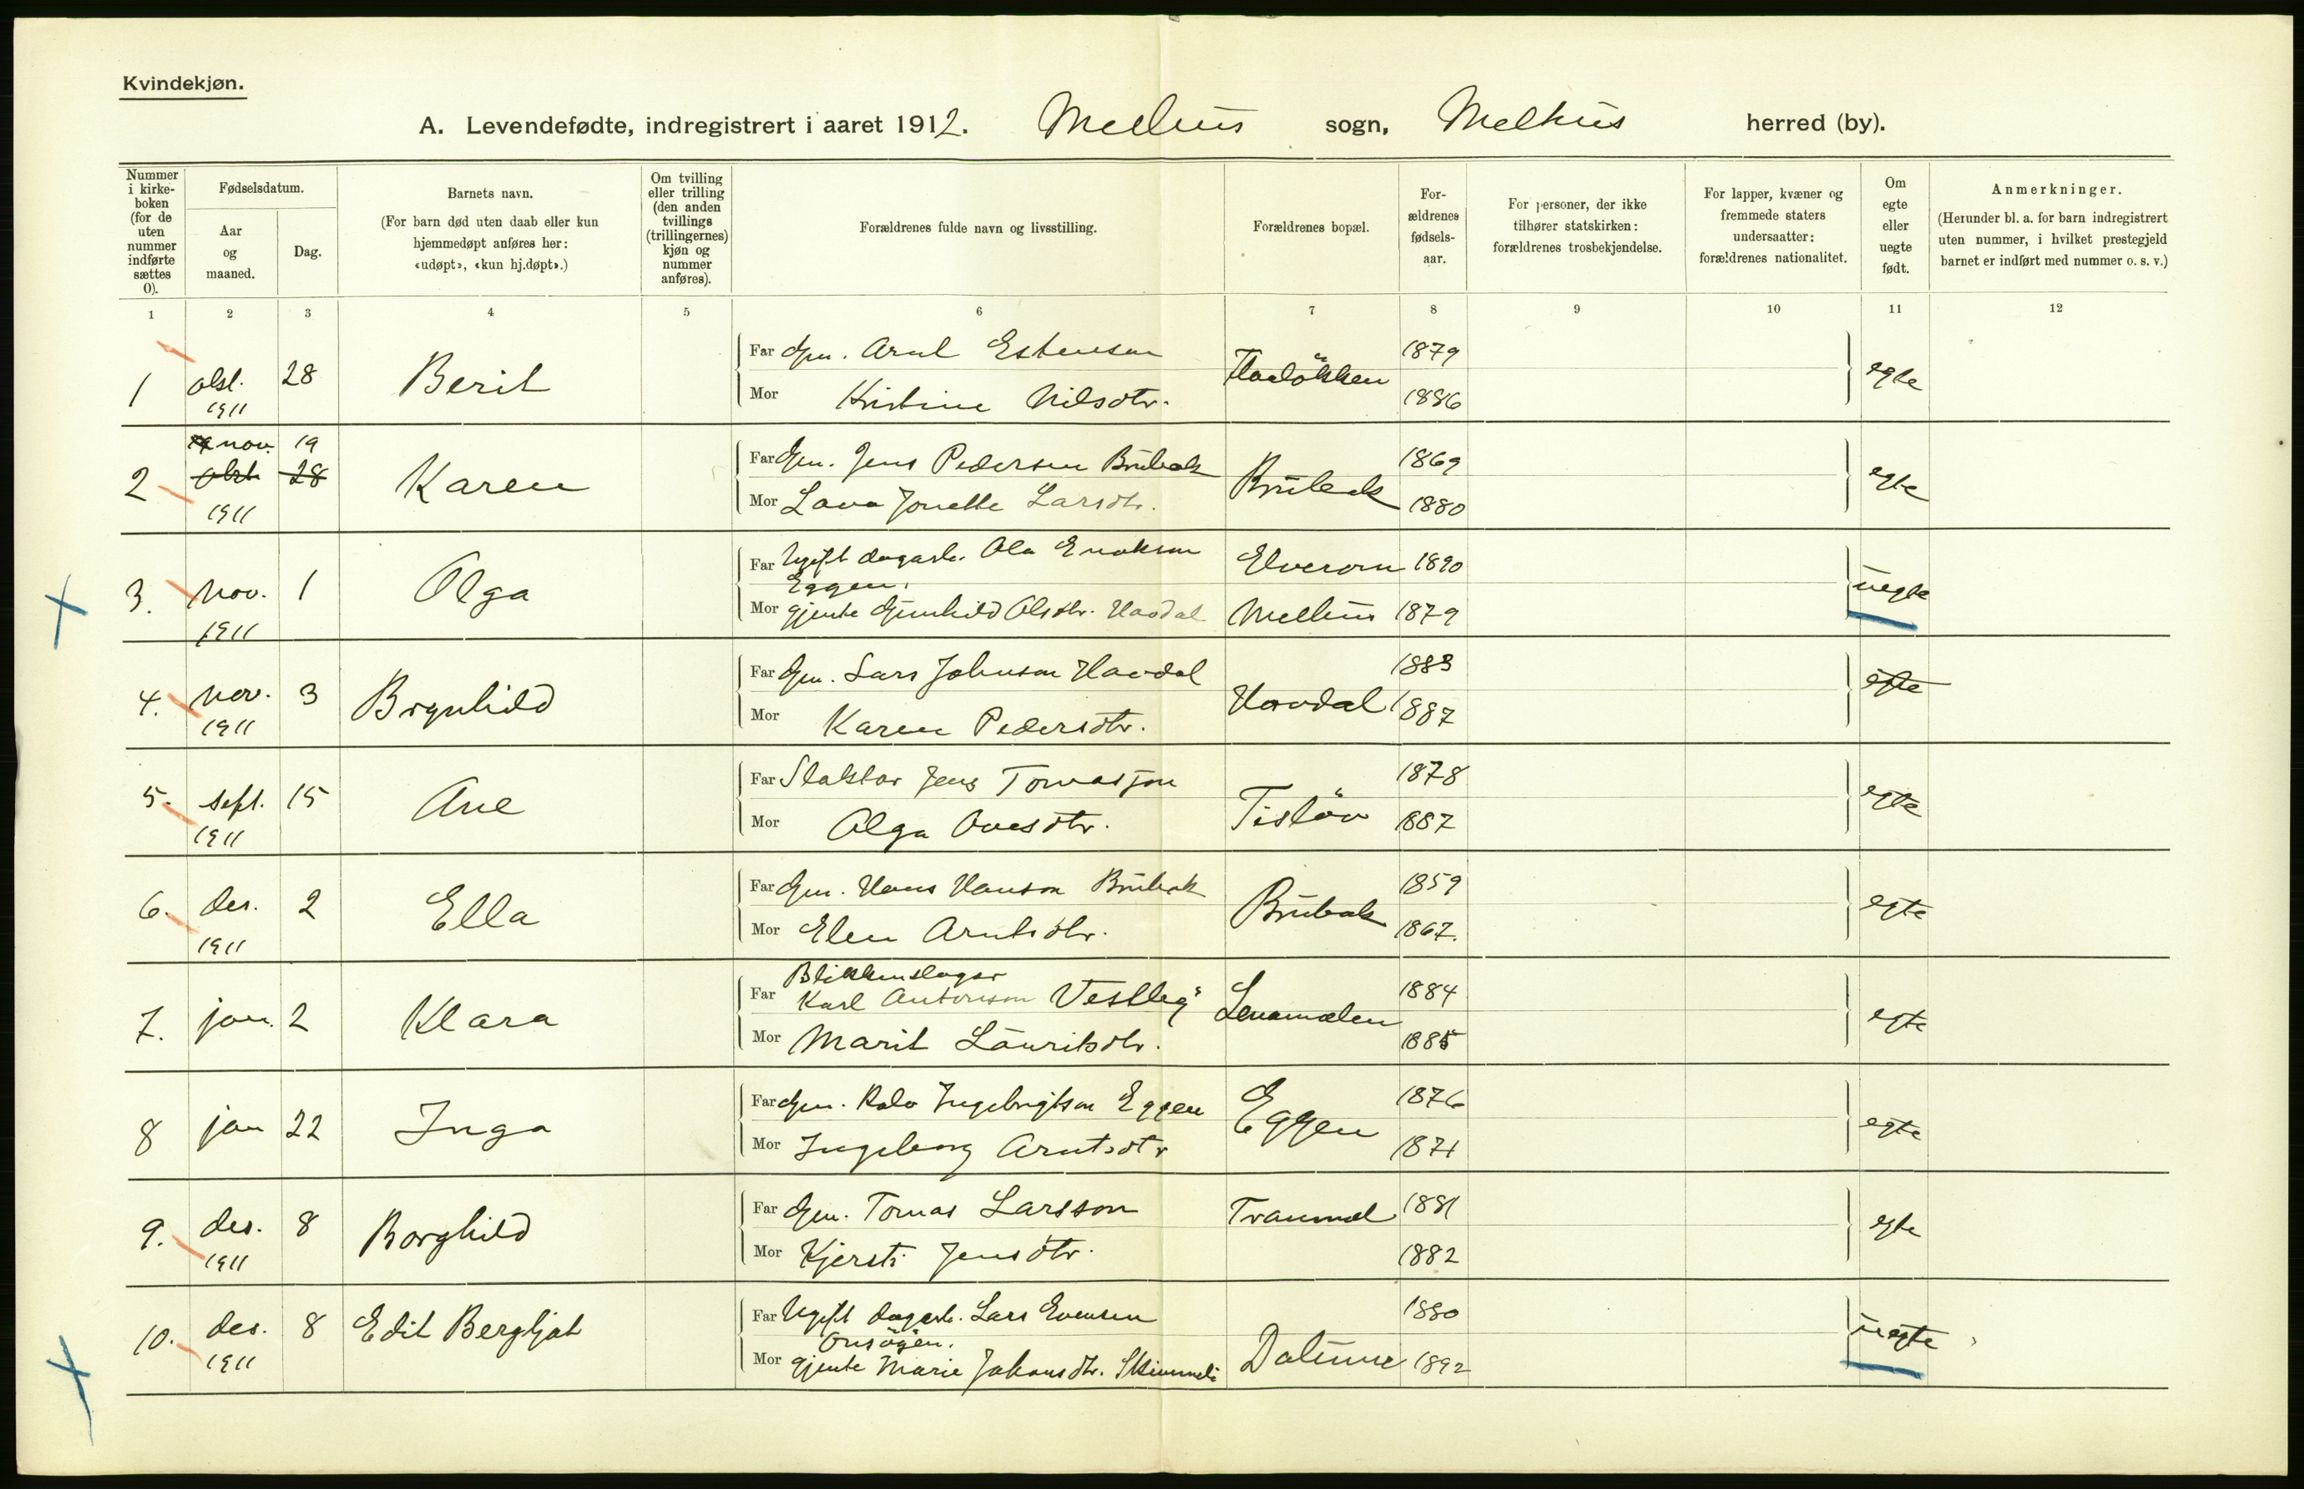 Kvindekjøn.
A. Levendefødte, indregistrert i aaret 1912. Melhus sogn, Melhus herred (by).
Nummer i kirke-boken (for de uten nummer indførte sættes 0).
Fødselsdatum.
Aar og maaned.
Dag.
Barnets navn.
(For barn død uten daab eller kun hjemmedøpt anføres her: «udøpt», «kun hj.døpt».)
Om tvilling eller trilling (den anden tvillings (trillingernes) kjøn og nummer anføres).
Forældrenes fulde navn og livsstilling.
Forældrenes bopæl.
For-ældrenes fødsels-aar.
For personer, der ikke tilhører statskirken: forældrenes trosbekjendelse.
For lapper, kvæner og fremmede staters undersaatter: forældrenes nationalitet.
Om egte eller uegte født.
Anmerkninger.
(Herunder bl. a. for barn indregistrert uten nummer, i hvilket prestegjeld barnet er indført med nummer o. s. v.)
1 2 3 4 5 6 7 8 9 10 11 12
Far Gm. Arnt Estensen 1879
1 okt. 28 Berit egte
1911 Mor Kristine Nilsdtr. 1886
nov. 19 Far Gm. Jens Pedersen Brubak 1869
2 okt. 28 Karen Brubak egte
1911 Mor Jonette Larsdtr. 1880
Far Ugift dagarb. Ola Erikson Elverom 1890
Eggen.
3. nov. 1 Olga uegte
1911 Mor gjente Gunhild Olsdtr. Havdal Melhus 1879
Far Gm. Lars Johnson Havdal 1883
4. nov. 3 Brynhild Havdal egte
1911 Mor Karen Pedersdtr. 1887
Far Slaktar Jens Tomasson 1878
5. sept. 15 Ane Tisløv egte
1911 Mor Olga Ovesdtr. 1887
Far Gm. Hans Hanson Brubak 1859
6. des. 2 Ella Brubak egte
1911 Mor Elen Arntsdtr. 1867.
Blikkenslager
Far Karl Antonson Vestby 1884
7. jan. 2 Klara Lenamælen egte
Mor Marit Lauritsdtr. 1885
Far Gm. Ingebrigtson Eggen 1876
8 jan 22 Inga Eggen egte
Mor Ingeborg Arntsdtr 1871
Far Gm. Tomas Larsson Tranmæl 1881
9. des. 8 Borghild egte
1911 Mor Kjersti Jensdtr. 1882
Far Ugift dagarb. Lars Evensen 1880
10. des. 8 Edit Bergljot uegte
1911 Mor gjente Marie Johansdtr. 1892